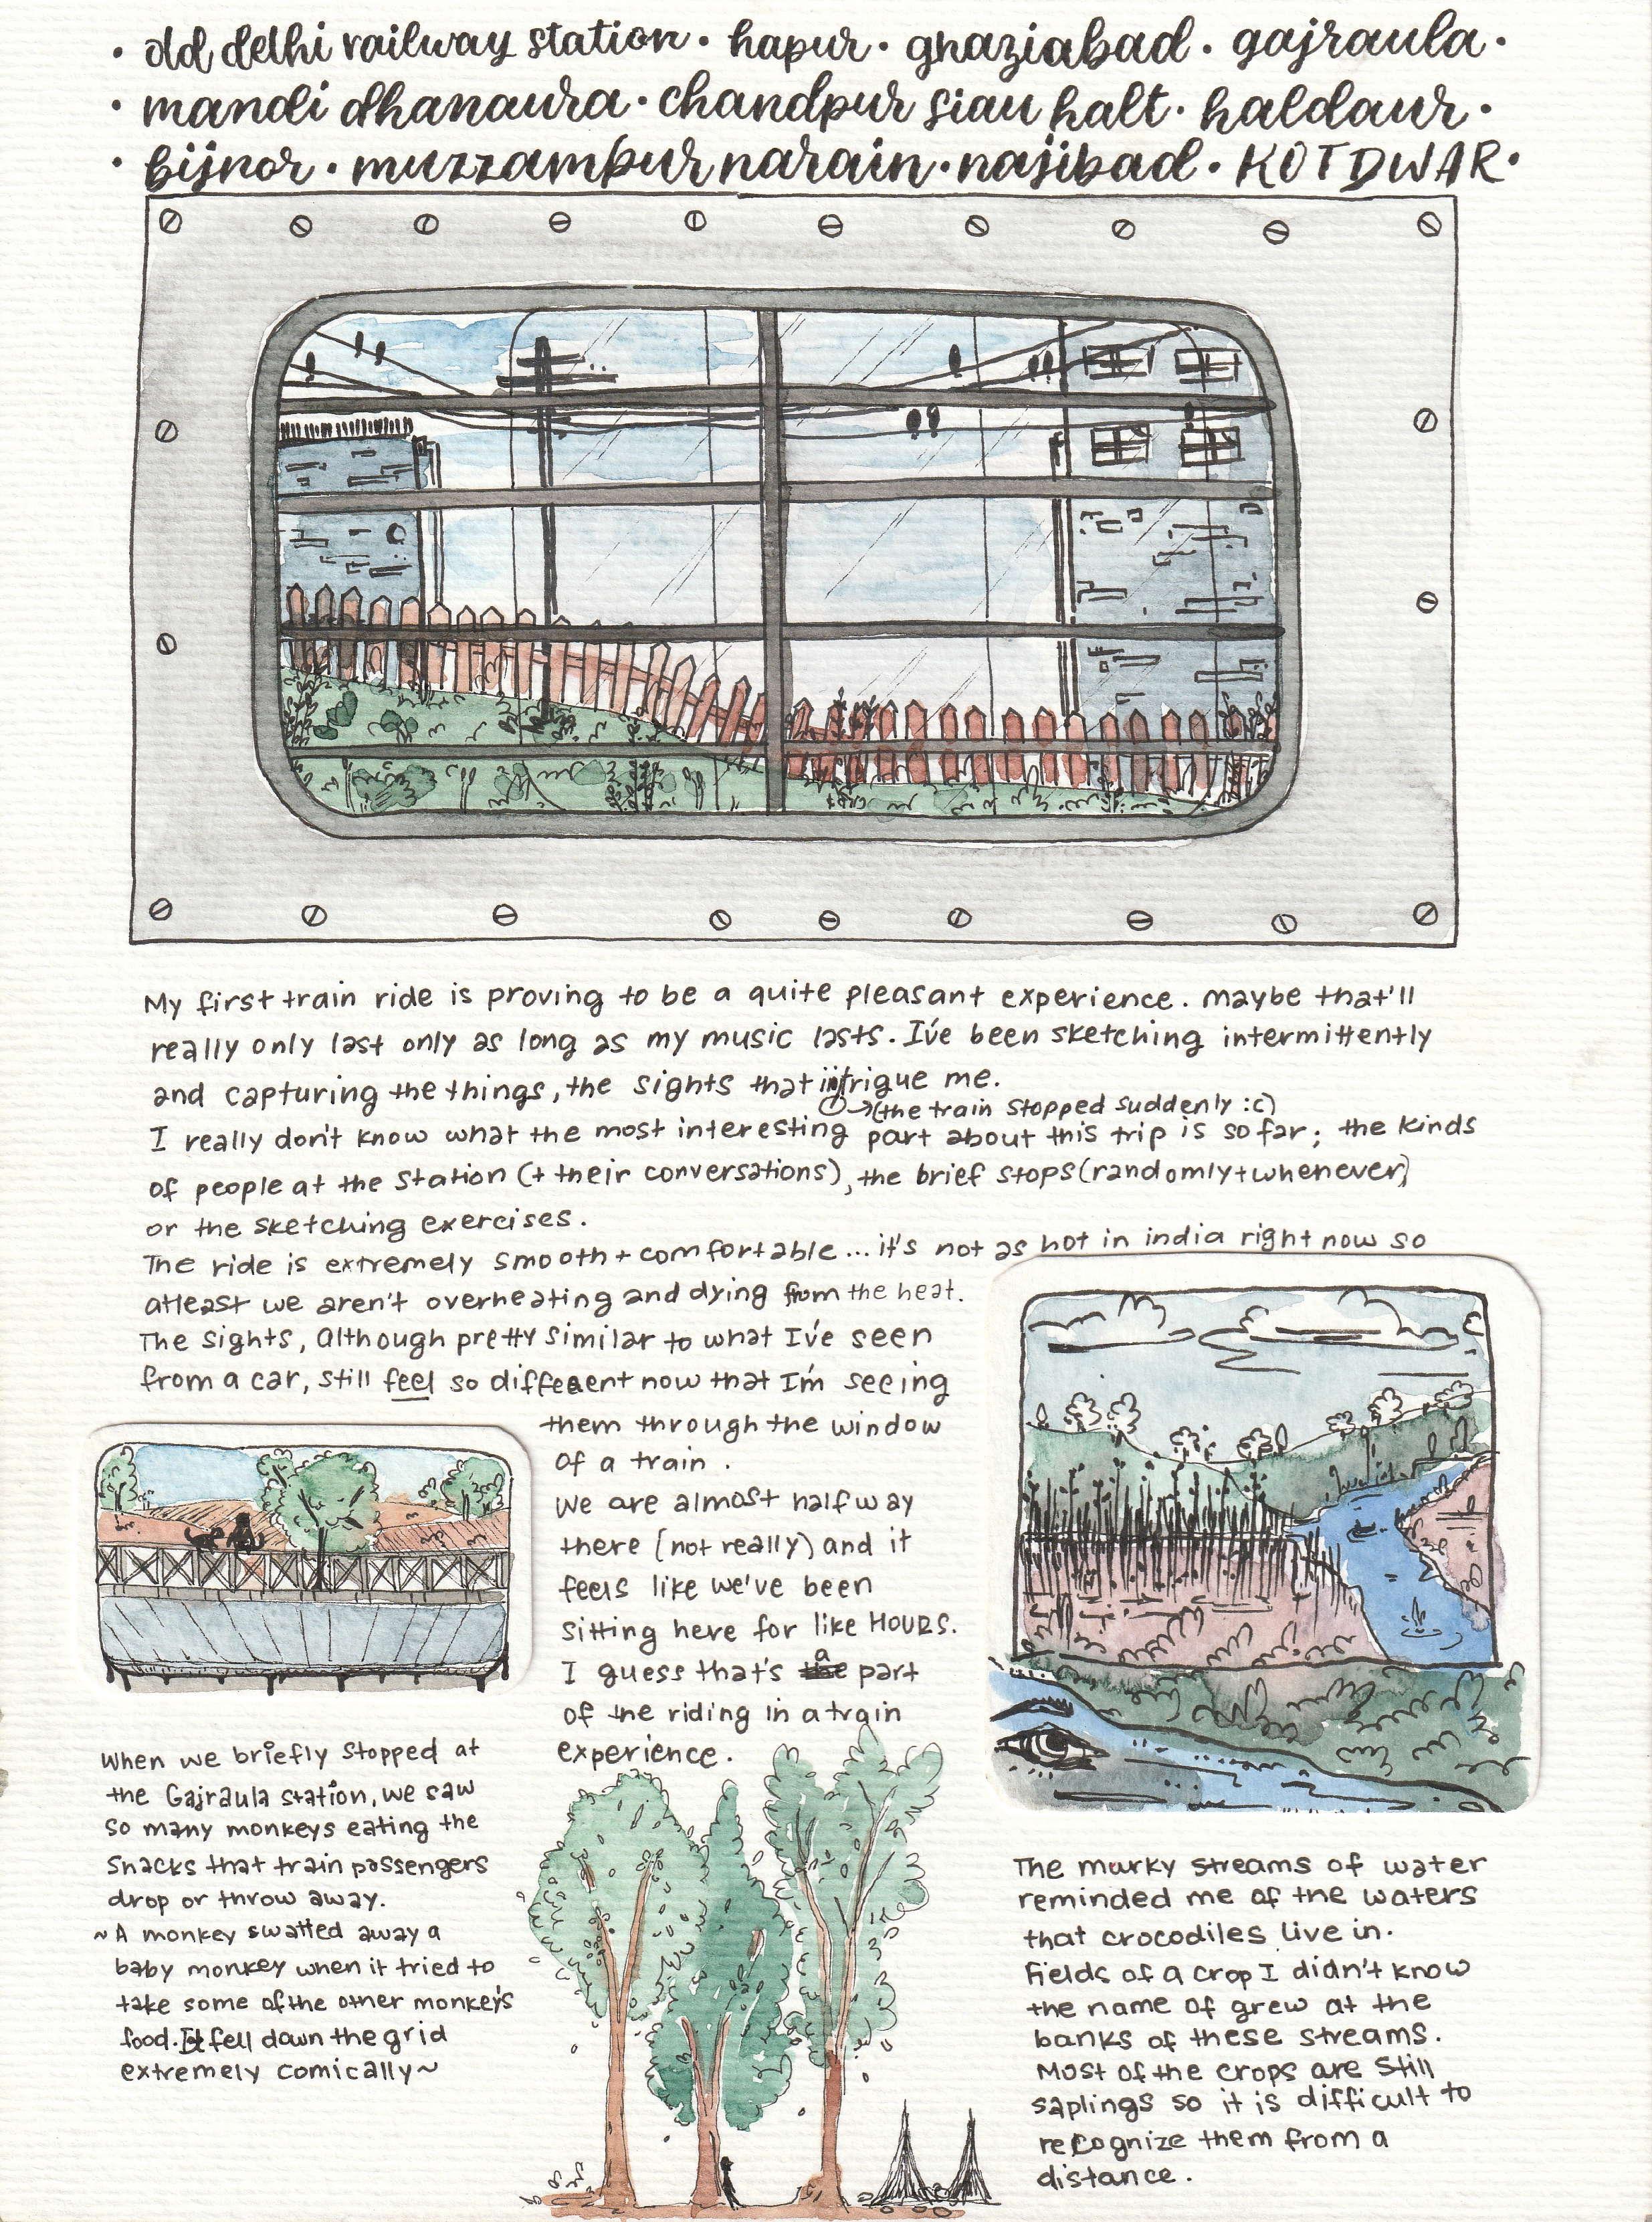 • old delhi railway station • hapur • ghaziabad • gajraula •
• mandi dhanaura • chandpur siau halt • haldaur •
• bijnor • muzzampur narain • najibad • KOTDWAR •
My first train ride is proving to be a quite pleasant experience. maybe that'll
really only last only as long as my music lasts. I've been sketching intermittently
and capturing the things, the sights that intrigue me.
→(the train stopped suddenly :c)
I really don't know what the most interesting part about this trip is so far; the kinds
of people at the station (+ their conversations), the brief stops (randomly + whenever)
or the sketching exercises.
The ride is extremely smooth + comfortable... it's not as hot in india right now so
atleast we aren't overheating and dying from the heat.
The sights, although pretty similar to what I've seen
from a car, still feel so different now that I'm seeing
them through the window
of a train.
We are almost halfway
there (not really) and it
feels like we've been
sitting here for like HOURS.
I guess that's a part
of the riding in a train
experience.
When we briefly stopped at
the Gajraula station, we saw
so many monkeys eating the
snacks that train passengers
drop or throw away.
~ A monkey swatted away a
baby monkey when it tried to
take some of the other monkey's
food. It fell down the grid
extremely comically ~
The murky streams of water
reminded me of the waters
that crocodiles live in.
Fields of a crop I didn't know
the name of grew at the
banks of these streams.
Most of the crops are still
saplings so it is difficult to
recognize them from a
distance.